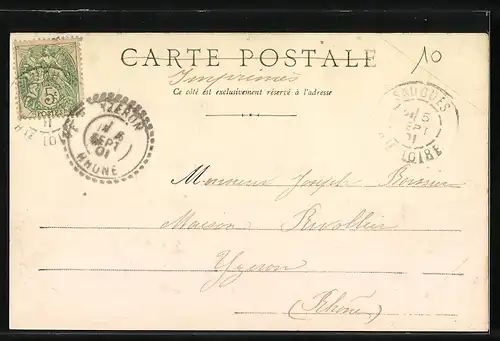 CARTE POSTALE
Imprimés
Ce côté est exclusivement réservé à l'adresse
10
5
YZERON
6
SEPT
01
RHONE
SAUGUES
5
SEPT
01
HTE LOIRE
Monsieur Joseph
Maison Rivollier
Yzeron
(Rhône)